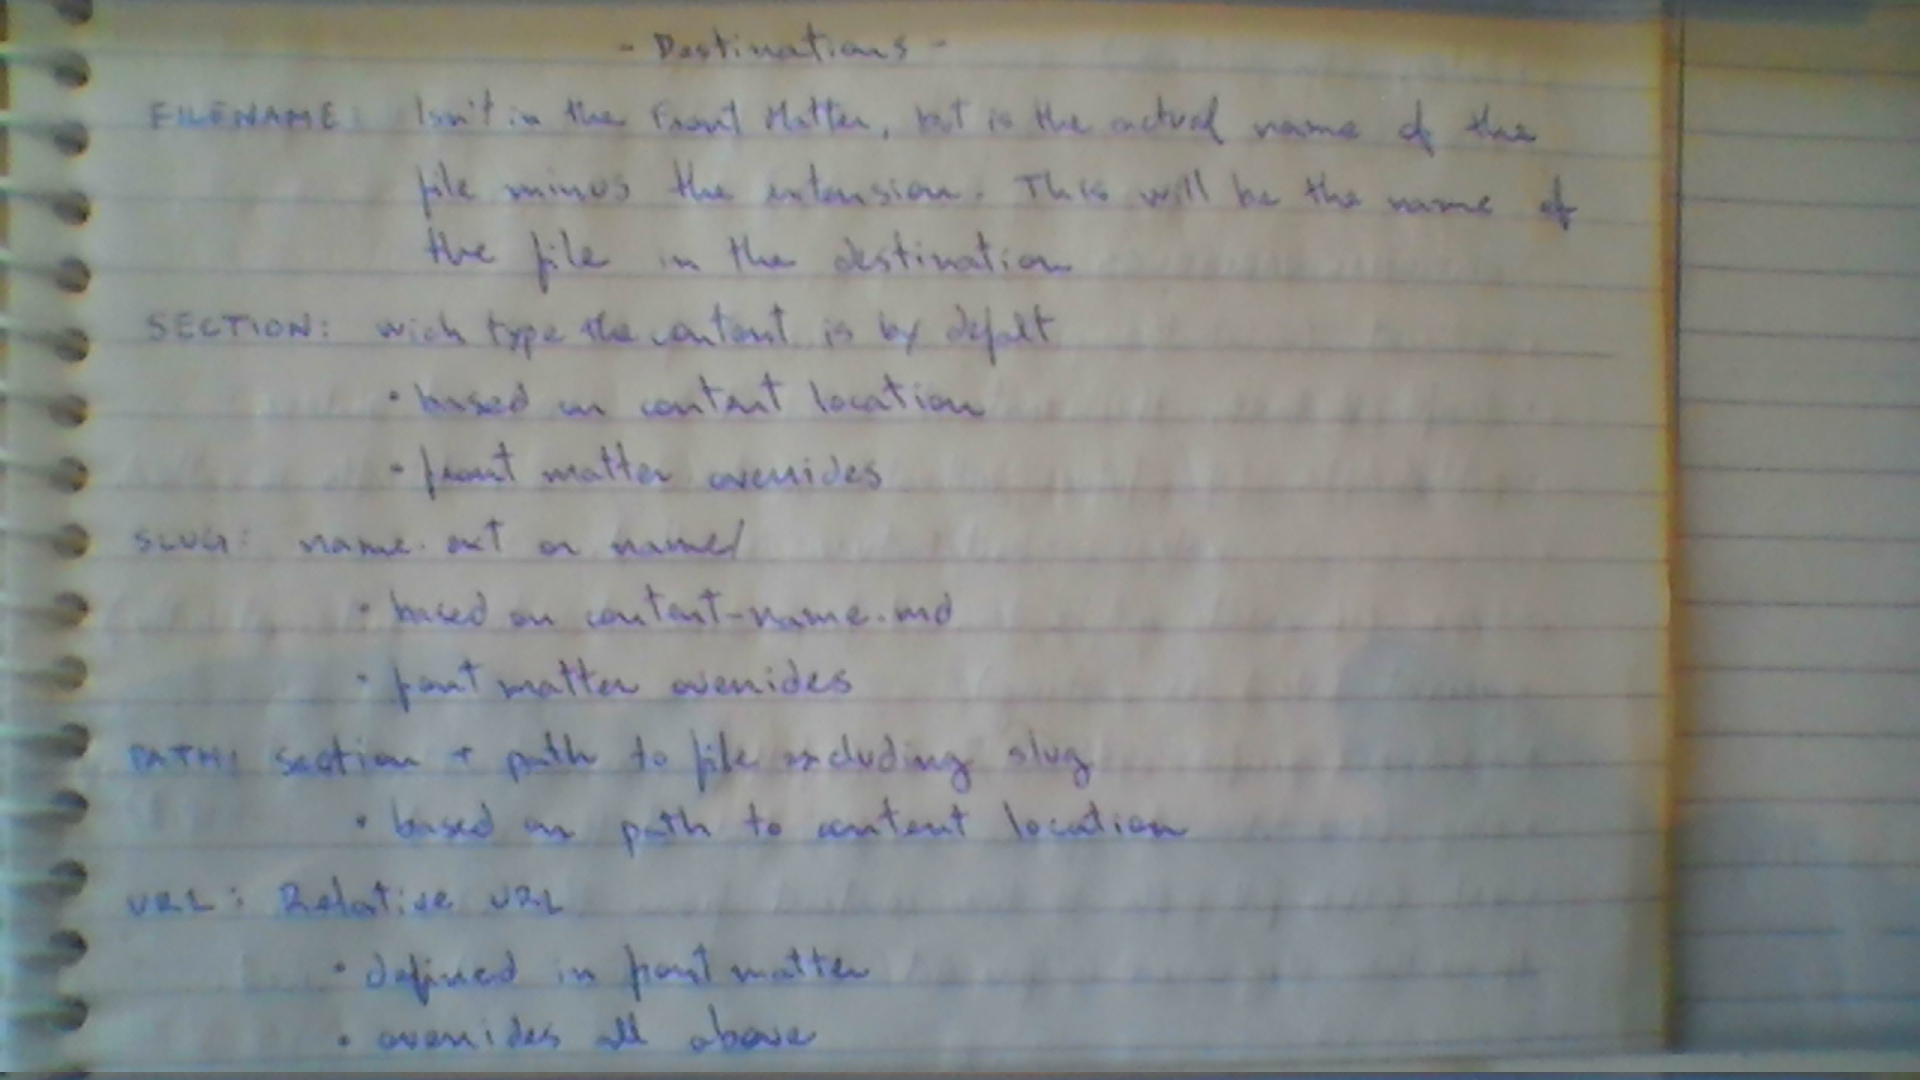 - Destinations -
FILENAME: Isn't in the Front Matter, but is the actual name of the
file minus the extension. This will be the name of
the file in the destination
SECTION: wich type the content is by defalt
• based on content location
• front matter overrides
SLUG: name.ext or name/
• based on content-name.md
• front matter overrides
PATH: section + path to file excluding slug
• based on path to content location
URL: Relative URL
• defined in front matter
• overrides all above